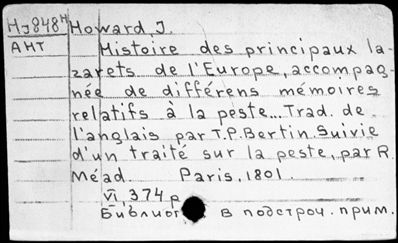 Hj848H Howard, J.
AHT Histoire des principaux la-
zarets de l'Europe, accompag-
née de différens mémoires
relatifs à la peste... Trad. de
l'anglais par T.P. Bertin. Suivie
d'un traité sur la peste, par R.
Méad. Paris, 1801.
VI, 374 p
Библиог в подстроч. прим.